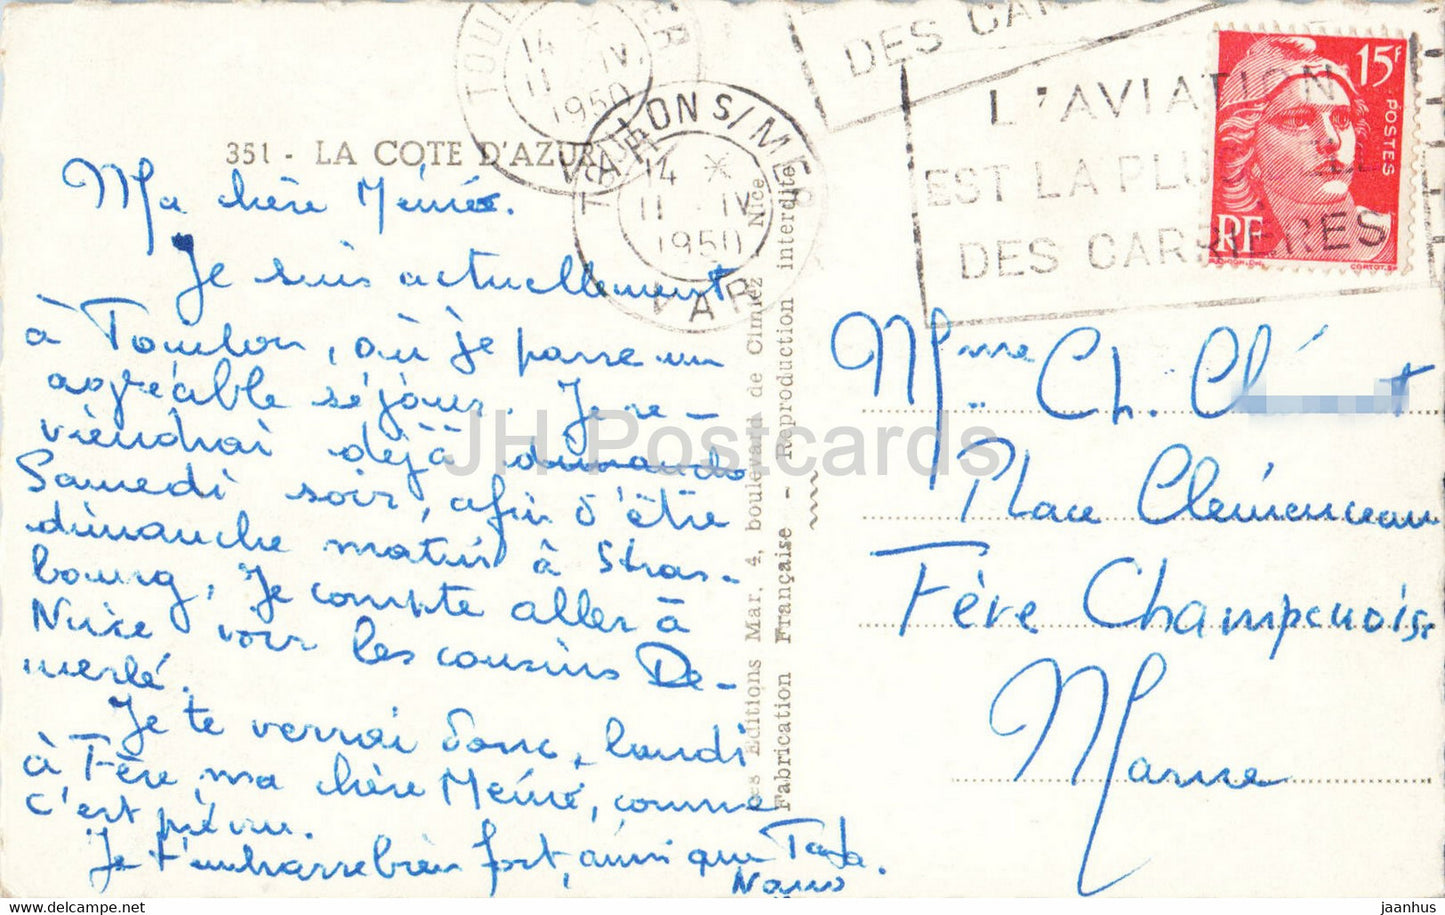 351 - LA COTE D'AZUR
Ma chère Mémé.
Je suis actuellement
à Toulon, où je passe un
agréable séjour. Je re-
viendrai déjà dimanche
Samedi soir, afin d'être
dimanche matin à Stras-
bourg, Je compte aller à
Nice voir les cousins De-
merlé.
Je te verrai donc, lundi
à Fère, ma chère Mémé, comme
c'est prévu.
Je t'embrasse bien fort, ainsi que Tata
TOULON S/MER
14 X
11 - IV
1950
VAR
TOULON S/MER
14 X
11 - IV
1950
VAR
DES CAR
L'AVIATION
EST LA PLUS
DES CARRIERES
15F
POSTES
RF
CORTOT.SC
Les Editions Mar, 4, boulevard de Cimiez - Nice
Fabrication Française - Reproduction interdite
Mme Ch. Clé t
Place Clémenceau
Fère Champenoise
Marne
JH Postcards
www.hipstamp.com
jaanhus